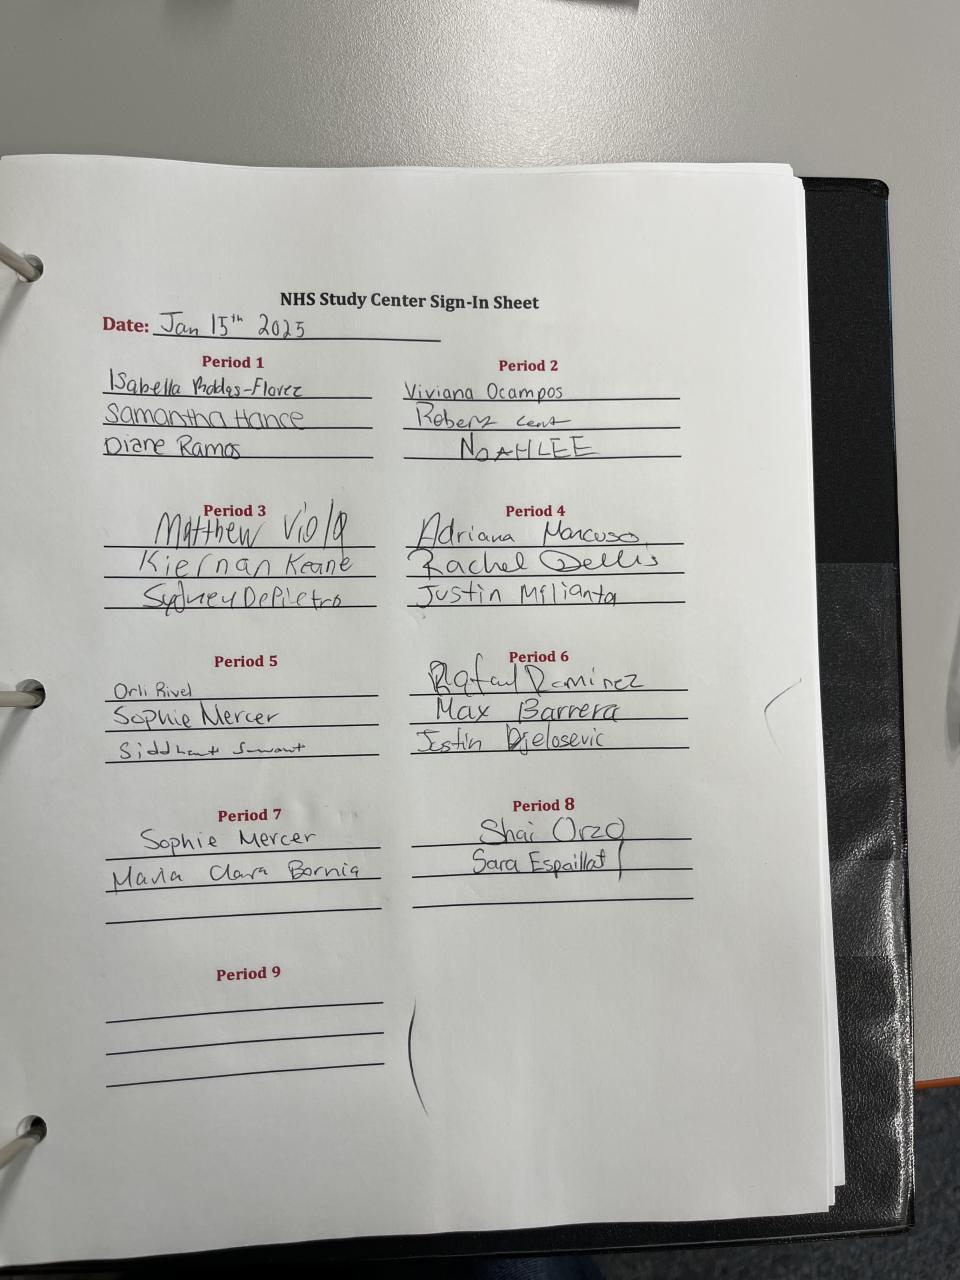 NHS Study Center Sign-In Sheet
Date: Jan 15th 2025
Period 1
Isabella
Samantha Hance
Diane Ramos
Period 2
Viviana Ocampos
Robert
NOAH LEE
Period 3
Matthew Viola
Kiernan Keane
Sydney DePietro
Period 4
Adriana Mancuso
Rachel Dellis
Justin Milianta
Period 5
Orli Rivel
Sophie Mercer
Siddhant
Period 6
Rafael Ramirez
Max Barrera
Justin Djelosevic
Period 7
Sophie Mercer
Maria Clara Bornia
Period 8
Shai Orzo
Sara Espaillat
Period 9